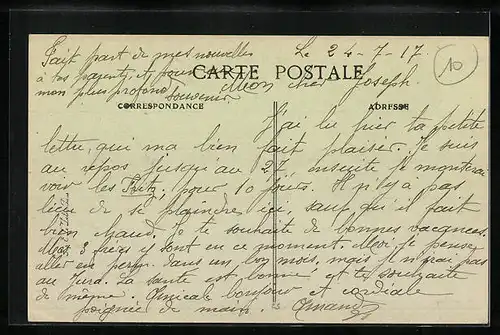 Le 24-7-17
Fait part de mes nouvelles
à tes parents, et pour
mon plus profond
souvenir.
CARTE POSTALE
Mon cher Joseph.
CORRESPONDANCE
ADRESSE
J'ai lu hier ta petite
lettre, qui m'a bien fait plaisir. Je suis
au repos jusqu'au 27, ensuite je monterai
voir les Fritz, pour 10 jours. Il n'y a pas
lieu de se plaindre ici, sauf qu'il fait
bien chaud. Je te souhaite de bonnes vacances.
3 frères y sont en ce moment. Moi, je pense
aller en perm. dans un bon mois, mais je n'irai pas
au Jura. La santé est bonne et te souhaite
de même. Amicale bonjour et cordiale
poignée de main. Armand
10